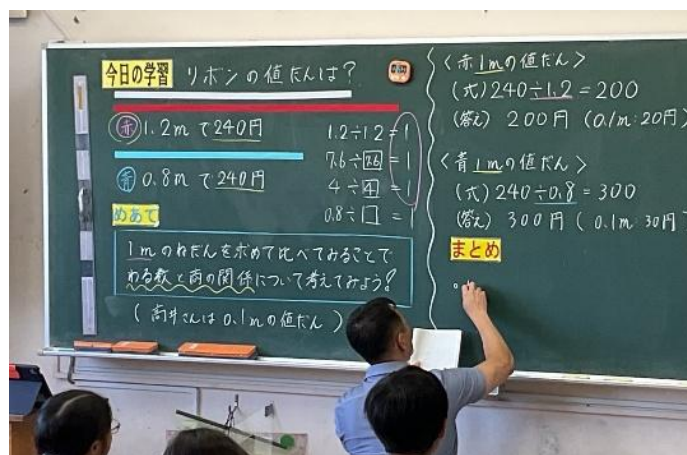 今日の学習 リボンの値だんは?
赤 1.2mで240円
青 0.8mで240円
1.2÷1.2=1
7.6÷7.6=1
4÷4=1
0.8÷□=1
めあて
1mのねだんを求めて比べてみることで
わる数と商の関係について考えてみよう!
(高井さんは0.1mの値だん)
<赤1mの値だん>
(式)240÷1.2=200
(答え) 200円 (0.1m:20円)
<青1mの値だん>
(式)240÷0.8=300
(答え) 300円 (0.1m:30円
まとめ